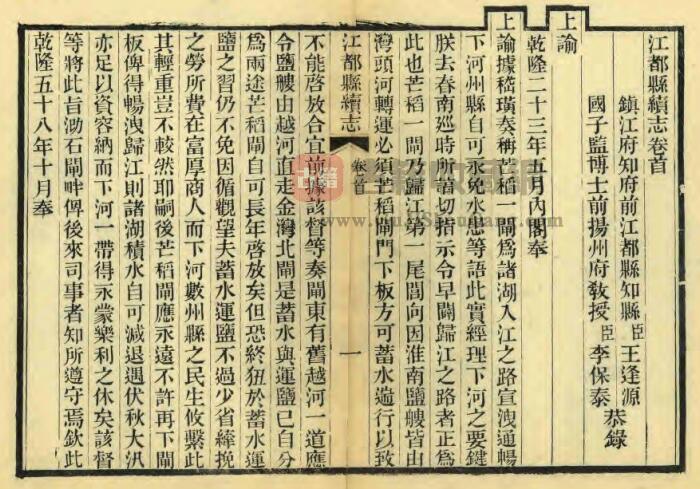 江都縣續志卷首
鎮江府知府前江都縣知縣臣王逢源
國子監博士前揚州府敎授臣李保泰恭錄
上諭
乾隆二十三年五月內閣奉
上諭據嵇璜奏稱芒稻一閘爲諸湖入江之路宣洩通暢
下河州縣自可永免水患等語此實經理下河之要鍵
朕去春南廵時所諄切指示令早闢歸江之路者正爲
此也芒稻一閘乃歸江第一尾閭向因淮南鹽艘皆由
灣頭河轉運必須芒稻閘門下板方可蓄水遄行以致
江都縣續志
卷首
一
不能啓放合宜前據該督等奏閘東有舊越河一道應
令鹽艘由越河直走金灣北閘是蓄水與運鹽已自分
爲兩途芒稻閘自可長年啓放矣但恐終狃於蓄水運
鹽之習仍不免因循觀望夫蓄水運鹽不過少省縴挽
之勞所費在富厚商人而下河數州縣之民生攸繫此
其輕重豈不較然耶嗣後芒稻閘應永遠不許再下閘
板俾得暢洩歸江則諸湖積水自可減退遇伏秋大汛
亦足以資容納而下河一帶得永蒙樂利之休矣該督
等將此旨泐石閘畔俾後來司事者知所遵守焉欽此
乾隆五十八年十月奉